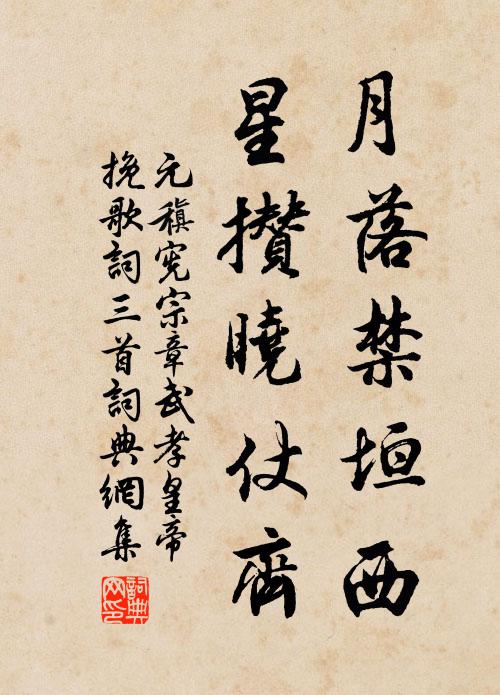 月落禁垣西
星攢曉仗齊
元稹宪宗章武孝皇帝
挽歌詞三首詞典網集
詞典
网印